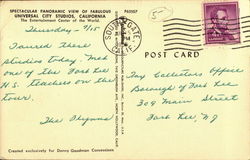 SPECTACULAR PANORAMIC VIEW OF FABULOUS
UNIVERSAL CITY STUDIOS, CALIFORNIA
The Entertainment Center of the World.
P63057
5
POST CARD
Thursday - 9/15
Toured these
Studios today. Met
one of the Fort Lee
H.S. teachers on the
tour.
The
Tax Collectors Office
Borough of Fort Lee
309 Main Street
Fort Lee, N.J
Created exclusively for Danny Goodman Concessions